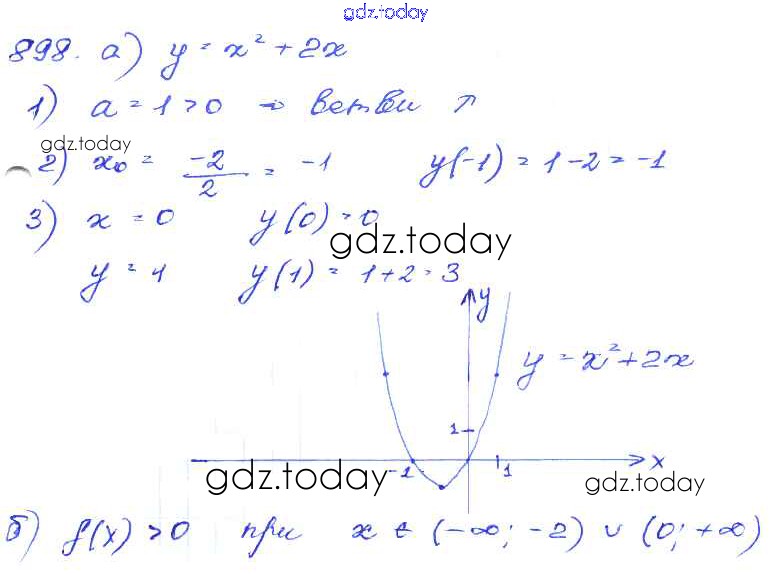 gdz.today
898. а) y = x² + 2x
1) a = 1 > 0 → ветви ↑
gdz.today
2) x₀ = -2/2 = -1 y(-1) = 1 - 2 = -1
3) x = 0 y(0) = 0
gdz.today
y = 1 y(1) = 1 + 2 = 3
y
y = x² + 2x
1
-1 1 x
gdz.today gdz.today
б) f(x) > 0 при x ∈ (-∞; -2) ∪ (0; +∞)